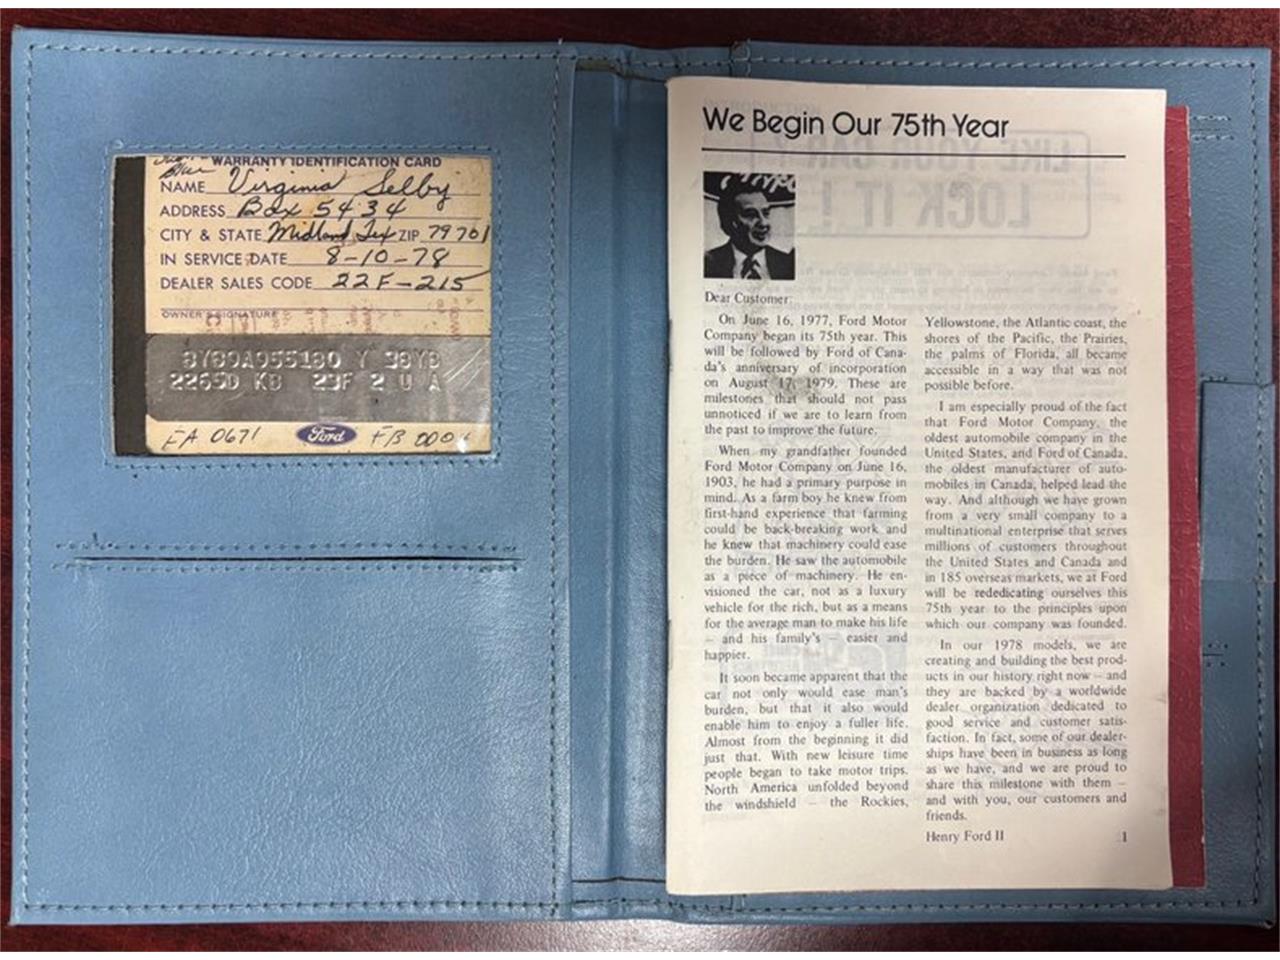 Blue
WARRANTY IDENTIFICATION CARD
NAME Virginia Selby
ADDRESS Box 5434
CITY & STATE Midland Tex ZIP 79701
IN SERVICE DATE 8-10-78
DEALER SALES CODE 22F-215
OWNER'S SIGNATURE
8Y89A955180 Y
2265D KB 2 U A
EA 0671 Ford FB
We Begin Our 75th Year
LIKE YOUR CAR?
LOCK IT!
Dear Customer:
On June 16, 1977, Ford Motor
Company began its 75th year. This
will be followed by Ford of Cana-
da's anniversary of incorporation
on August 17, 1979. These are
milestones that should not pass
unnoticed if we are to learn from
the past to improve the future.
When my grandfather founded
Ford Motor Company on June 16,
1903, he had a primary purpose in
mind. As a farm boy he knew from
first-hand experience that farming
could be back-breaking work and
he knew that machinery could ease
the burden. He saw the automobile
as a piece of machinery. He en-
visioned the car, not as a luxury
vehicle for the rich, but as a means
for the average man to make his life
– and his family's – easier and
happier.
It soon became apparent that the
car not only would ease man's
burden, but that it also would
enable him to enjoy a fuller life.
Almost from the beginning it did
just that. With new leisure time
people began to take motor trips.
North America unfolded beyond
the windshield – the Rockies,
Yellowstone, the Atlantic coast, the
shores of the Pacific, the Prairies,
the palms of Florida, all became
accessible in a way that was not
possible before.
I am especially proud of the fact
that Ford Motor Company, the
oldest automobile company in the
United States, and Ford of Canada,
the oldest manufacturer of auto-
mobiles in Canada, helped lead the
way. And although we have grown
from a very small company to a
multinational enterprise that serves
millions of customers throughout
the United States and Canada and
in 185 overseas markets, we at Ford
will be rededicating ourselves this
75th year to the principles upon
which our company was founded.
In our 1978 models, we are
creating and building the best prod-
ucts in our history right now – and
they are backed by a worldwide
dealer organization dedicated to
good service and customer satis-
faction. In fact, some of our dealer-
ships have been in business as long
as we have, and we are proud to
share this milestone with them –
and with you, our customers and
friends.
Henry Ford II 1